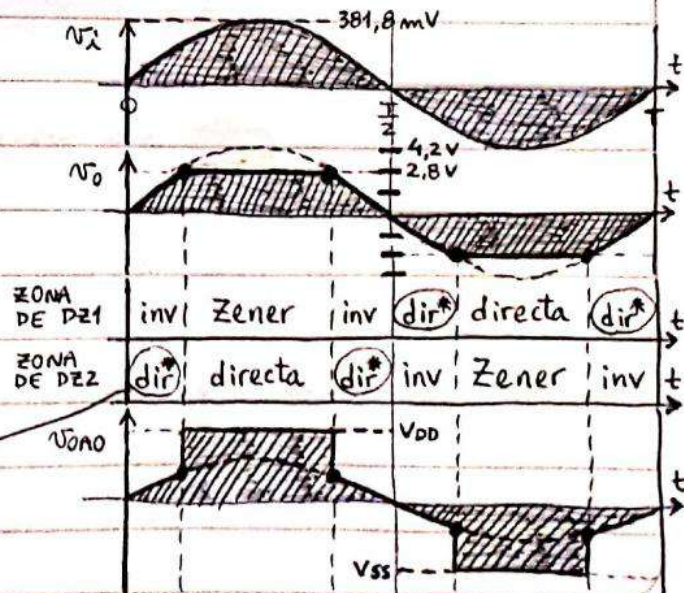 vi
381,8 mV
t
0
T/2
4,2 V
2,8 V
vo
t
ZONA DE DZ1 inv Zener inv dir* directa dir* t
ZONA DE DZ2 dir* directa dir* inv Zener inv t
vOAO
VDD
t
VSS